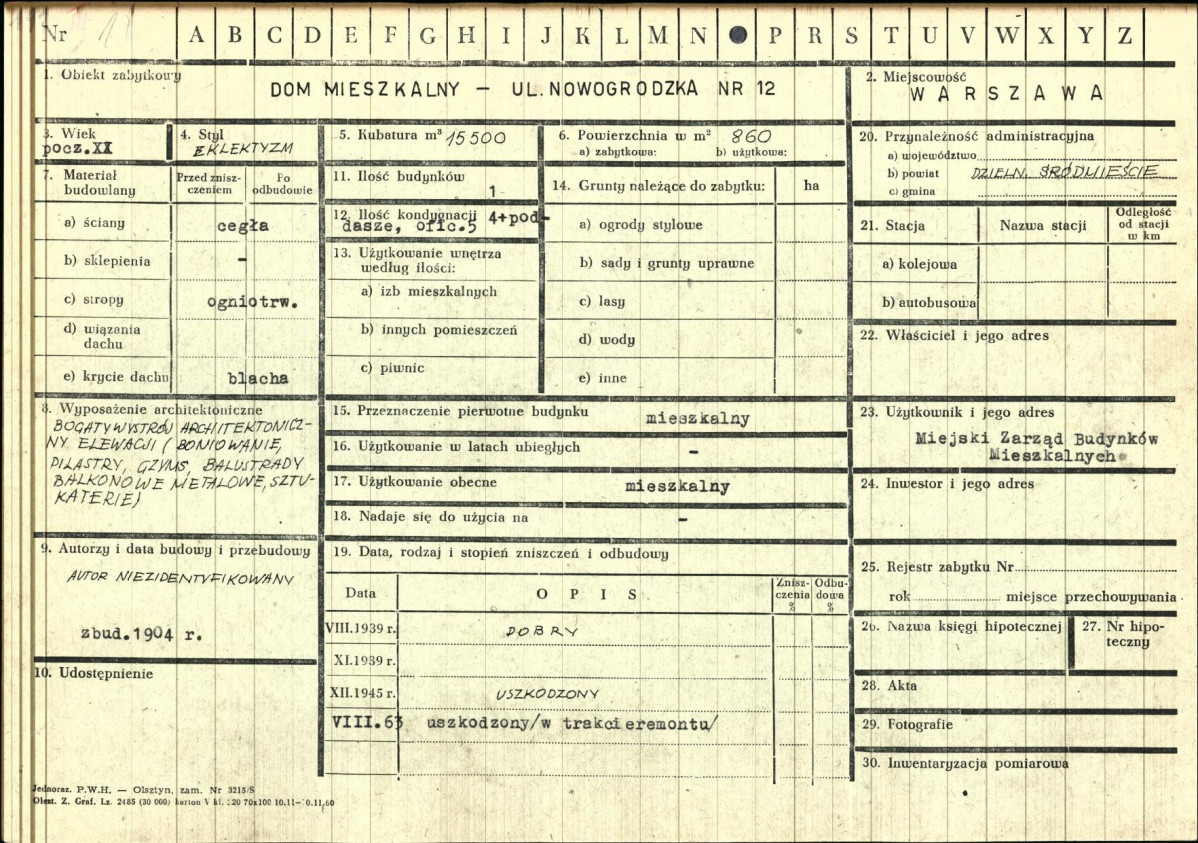 Nr
A B C D E F G H I J K L M N P R S T U V W X Y Z
1. Obiekt zabytkowy
DOM MIESZKALNY – UL. NOWOGRODZKA NR 12
2. Miejscowość
WARSZAWA
3. Wiek
pocz.XI
4. Styl
EKLEKTYZM
5. Kubatura m³ 15500
6. Powierzchnia w m² 860
a) zabytkowa: b) użytkowa:
7. Materiał budowlany
Przed zniszczeniem
Po odbudowie
a) ściany cegła
b) sklepienia -
c) stropy ogniotrw.
d) wiązania dachu
e) krycie dachu blacha
8. Wyposażenie architektoniczne
BOGATY WYSTRÓJ ARCHITEKTONICZ-
NY ELEWACJI (BONIOWANIE,
PILASTRY, GZYMS, BALUSTRADY
BALKONOWE METALOWE, SZTU-
KATERIE)
9. Autorzy i data budowy i przebudowy
AUTOR NIEZIDENTYFIKOWANY
zbud.1904 r.
10. Udostępnienie
11. Ilość budynków
1
12. Ilość kondygnacji 4+pod-
dasze, ofic.5
13. Użytkowanie wnętrza
według ilości:
a) izb mieszkalnych
b) innych pomieszczeń
c) piwnic
14. Grunty należące do zabytku: ha
a) ogrody stylowe
b) sady i grunty uprawne
c) lasy
d) wody
e) inne
15. Przeznaczenie pierwotne budynku mieszkalny
16. Użytkowanie w latach ubiegłych -
17. Użytkowanie obecne mieszkalny
18. Nadaje się do użycia na -
19. Data, rodzaj i stopień zniszczeń i odbudowy
Data OPIS Znisz-czenia % Odbu-dowa %
VIII.1939 r. DOBRY
XI.1939 r.
XII.1945 r. USZKODZONY
VIII.63 uszkodzony/w trakcieremontu/
20. Przynależność administracyjna
a) województwo
b) powiat DZIELN. ŚRÓDMIEŚCIE
c) gmina
21. Stacja Nazwa stacji Odległość od stacji w km
a) kolejowa
b) autobusowa
22. Właściciel i jego adres
23. Użytkownik i jego adres
Miejski Zarząd Budynków
Mieszkalnych
24. Inwestor i jego adres
25. Rejestr zabytku Nr
rok miejsce przechowywania
26. Nazwa księgi hipotecznej
27. Nr hipo-
teczny
28. Akta
29. Fotografie
30. Inwentaryzacja pomiarowa
Jednoraz. P.W.H. — Olsztyn, zam. Nr 3215/S
Olszt. Z. Graf. Lz. 2485 (30 000) karton V kl.